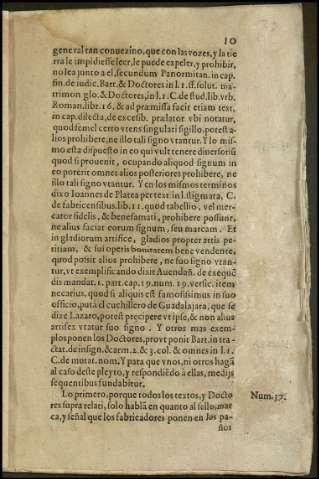 10
general tan conuezino, que con las vozes, y la tie
rra le impidiesse leer, le puede expeler, y prohibir,
no lea junto a el, secundum Panormitan. in cap.
fin. de iudic. Bart. & Doctores in l. 1. ff. solut. ma-
trimon. glo. & Doctores, in l. 1. C. de stud. lib. vrb.
Roman. libr. 16. & ad præmissa facit etiam text.
in cap. dilecta, de excessib. prælator. vbi notatur,
quod semel certo vtens singulari sigillo, potest a-
lios prohibere, ne illo tali signo vtantur. Y lo mis-
mo esta dispuesto in eo qui vult tenere diuersoriũ
quod si prouenit, ocupando aliquod signum in
eo poterit omnes alios posteriores prohibere, ne
illo tali signo vtantur. Y en los mismos terminos
dixo Ioannes de Platea per text. in l. stigmata, C.
de fabricensibus. lib. 11. quod tabellio, vel mer-
cator fidelis, & bene famati, prohibere possunt,
ne alius faciat eorum signum, seu marcam. Et
in gladiorum artifice, gladios propter artis pe-
ritiam, & sui operis bonitatem bene vendente,
quod possit alios prohibere, ne suo signo vtan-
tur, vt exemplificando dixit Auendañ. de exequẽ
dis mandat. 1. part. cap. 19. num. 19. versic. item
necarius, quod si aliquis est famosissimus in suo
officio, puta el cuchillero de Guadalajara, que se
dize Lazaro, potest præcipere vt ipse, & non alius
artifex vtatur suo signo. Y otros mas exem-
plos ponen los Doctores, provt ponit Bart. in tra-
ctat. de insign. & arm. 2. & 3. col. & omnes in l. 1.
C. de mutat. nom. Y para que vnos, ni otros hagã
al caso deste pleyto, y respondiẽdo à ellas, medijs
sequentibus fundabitur.
Lo primero, porque todos los textos, y Docto Num. 37.
res supra relati, solo hablã en quanto al sello, mar
ca, y señal que los fabricadores ponen en los pa-
ños